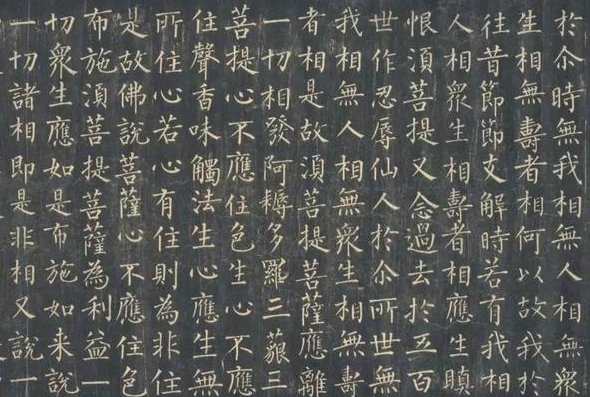 於尒時無我相無人相無衆
生相無壽者相何以故我於
往昔節節支解時若有我相
人相衆生相壽者相應生瞋
恨須菩提又念過去於五百
世作忍辱仙人於尒所世無
我相無人相無衆生相無壽
者相是故須菩提菩薩應離
一切相發阿耨多羅三藐三
菩提心不應住色生心不應
住聲香味觸法生心應生無
所住心若心有住則為非住
是故佛說菩薩心不應住色
布施須菩提菩薩為利益一
切衆生應如是布施如来說
一切諸相即是非相又說一